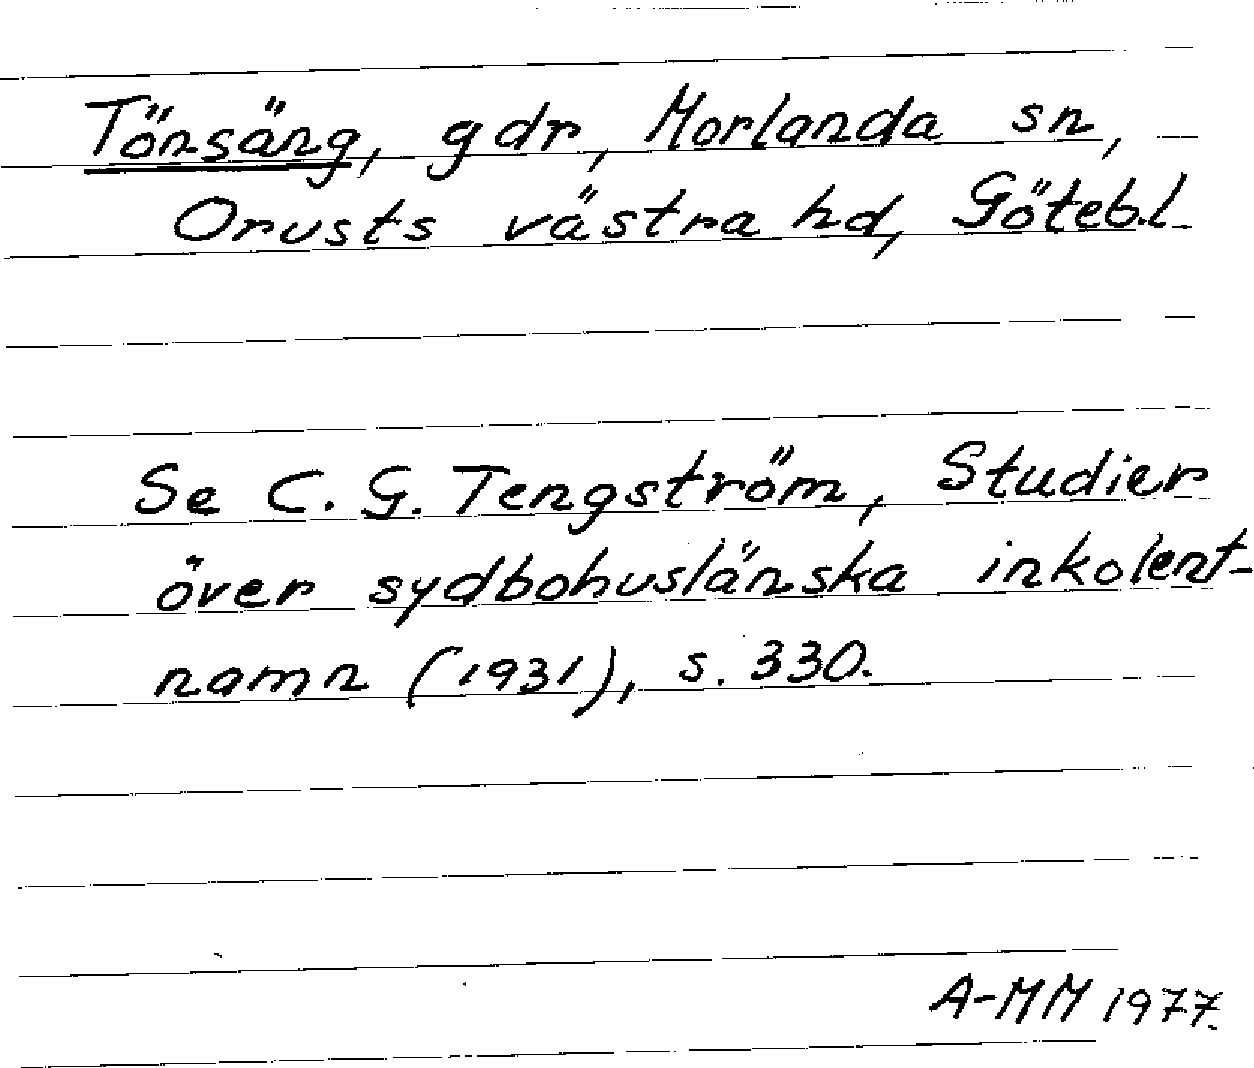 Tönsäng, gdr, Morlanda sn,
Orusts västra hd, Göteb.l.
Se C. G. Tengström, Studier
över sydbohuslänska inkolent-
namn (1931), s. 330.
A-MM 1977.